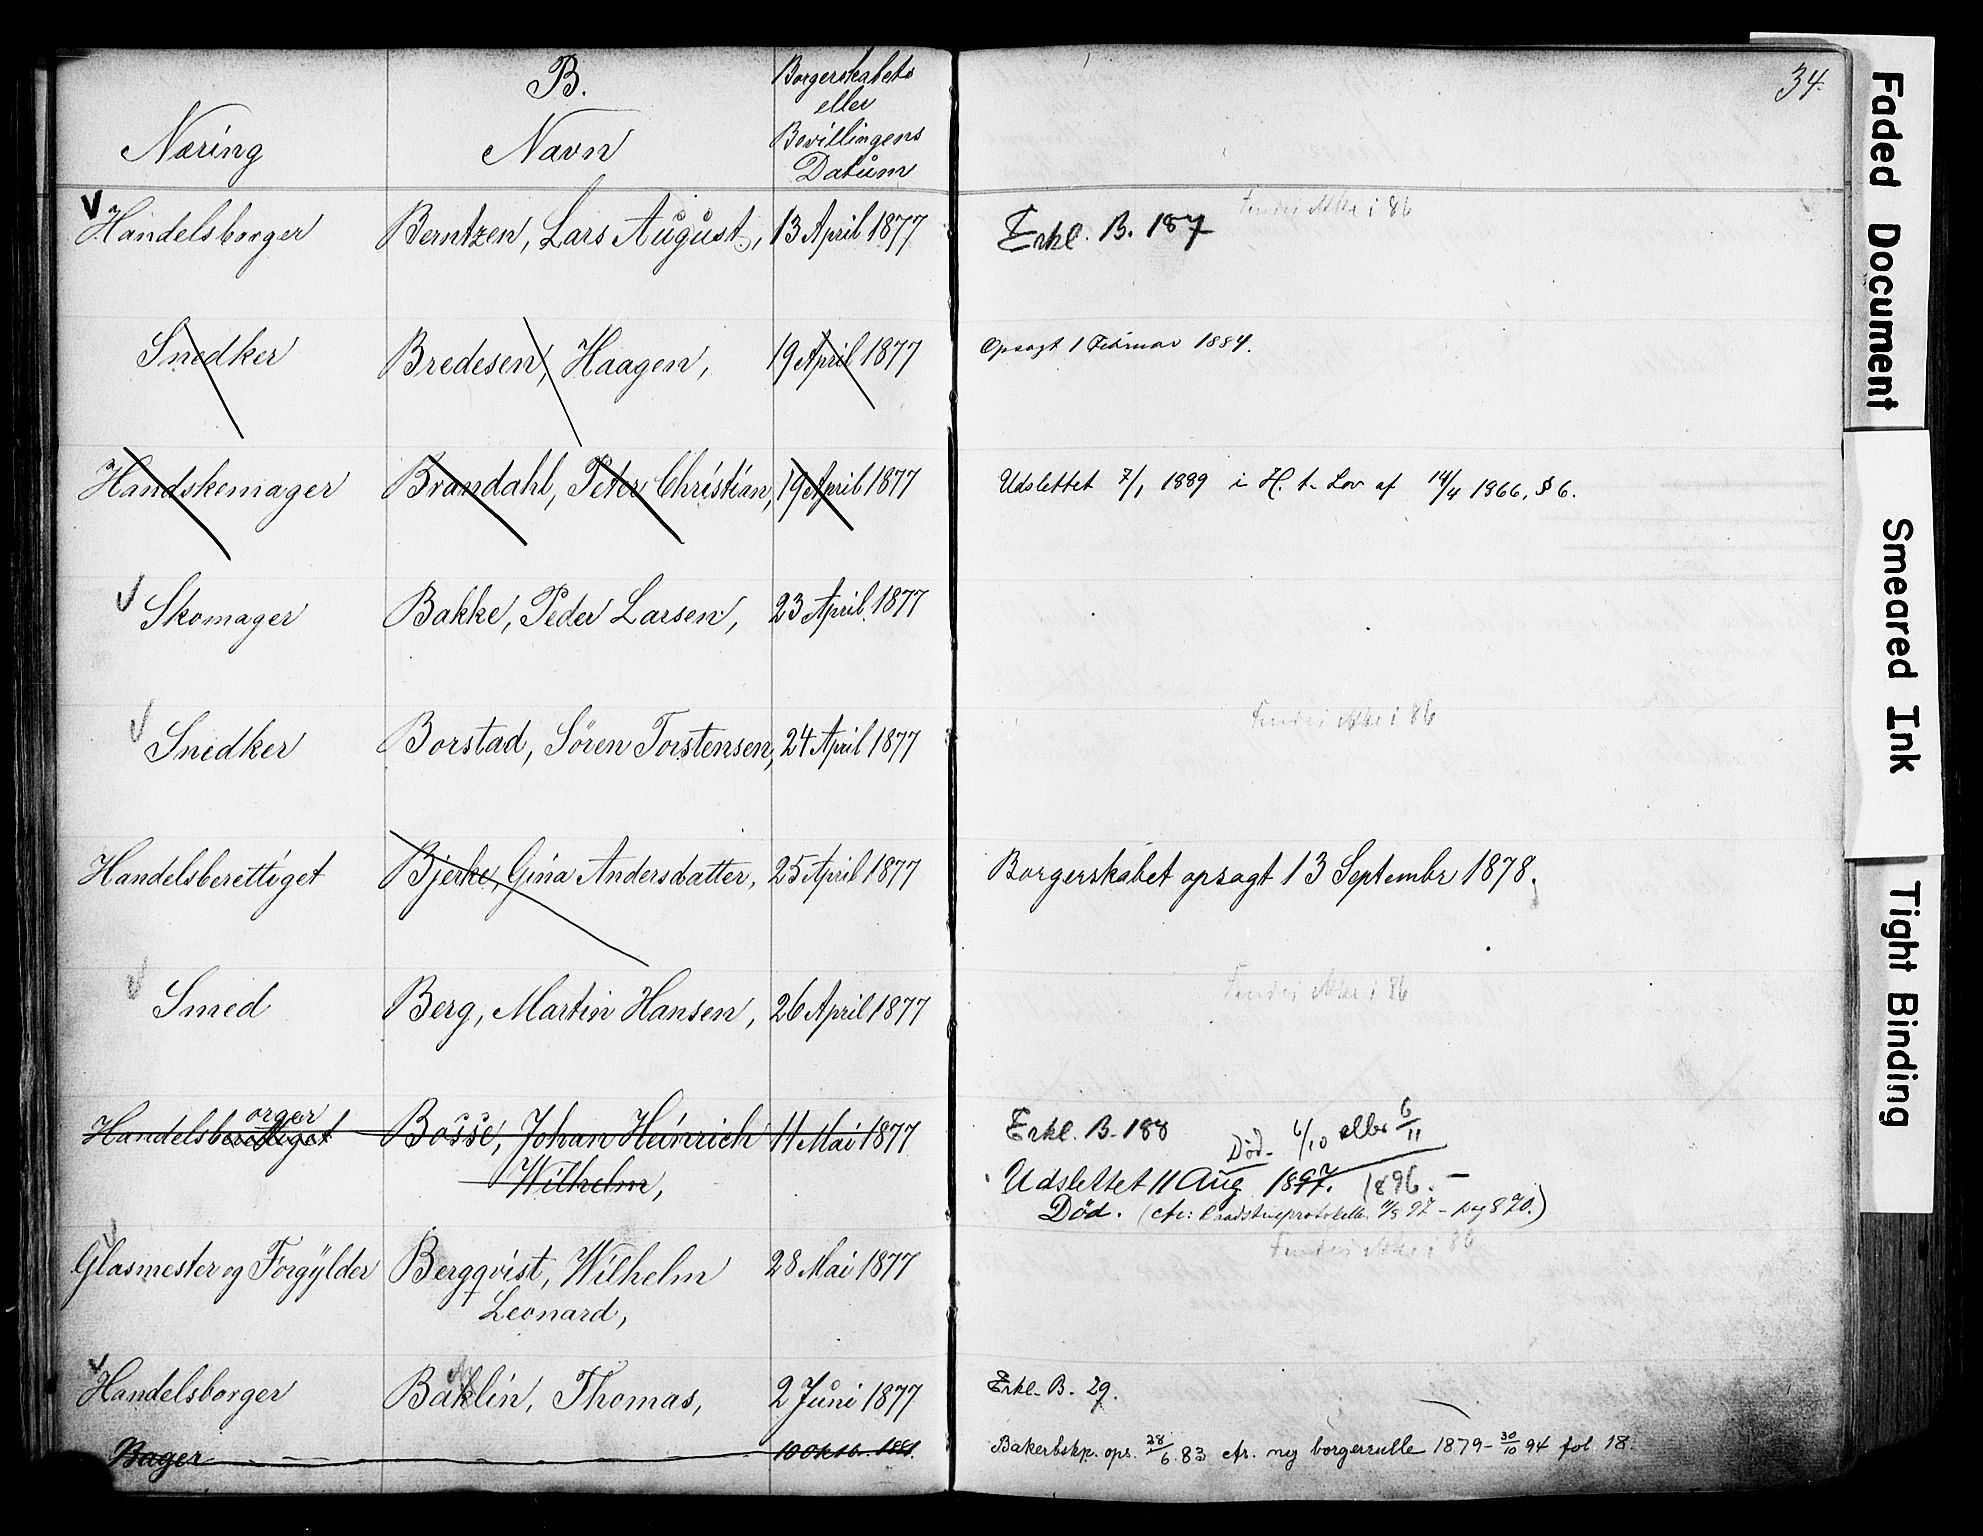 B.
Næring
Navn
Borgerskabets
eller
Bevillingens
Datum
34.
Handelsborger Berntzen, Lars August, 13 April 1877 Erkl. B. 187
i 86
Snedker Bredesen, Haagen, 19 April 1877 Opsagt 1 Februar 1884.
Handskemager Brandahl, Peter Christian, 19 April 1877 Udslettet 7/1 1889 i H. t. Lov af 14/4 1866, § 6.
Skomager Bakke, Peder Larsen, 23 April 1877
Snedker Borstad, Sören Torstensen, 24 April 1877
i 86
Handelsberettiget Bjerke, Gina Andersdatter, 25 April 1877 Borgerskabet opsagt 13 Septembr 1878.
Smed Berg, Martin Hansen, 26 April 1877
i 86
orger
Handelsberettiget Bosse, Johan Heinrich 11 Mai 1877 Erkl. B. 188
Død. 6/10 eller 6/11
Wilhelm, Udslettet 11 Aug 1897. 1896. –
Død. (cfr: 11/8 97 – pag 870.)
i 86
Glasmester og Forgylder Bergqvist, Wilhelm 28 Mai 1877
Leonard,
Handelsborger Baklin, Thomas, 2 Juni 1877 Erkl. B. 29.
Bager 10 Oktb. 1881. Bakerbskp. ops. 28/6 83 cfr. ny borgerrulle 1879 – 30/10 94 fol. 18.
Faded Document
Smeared Ink
Tight Binding